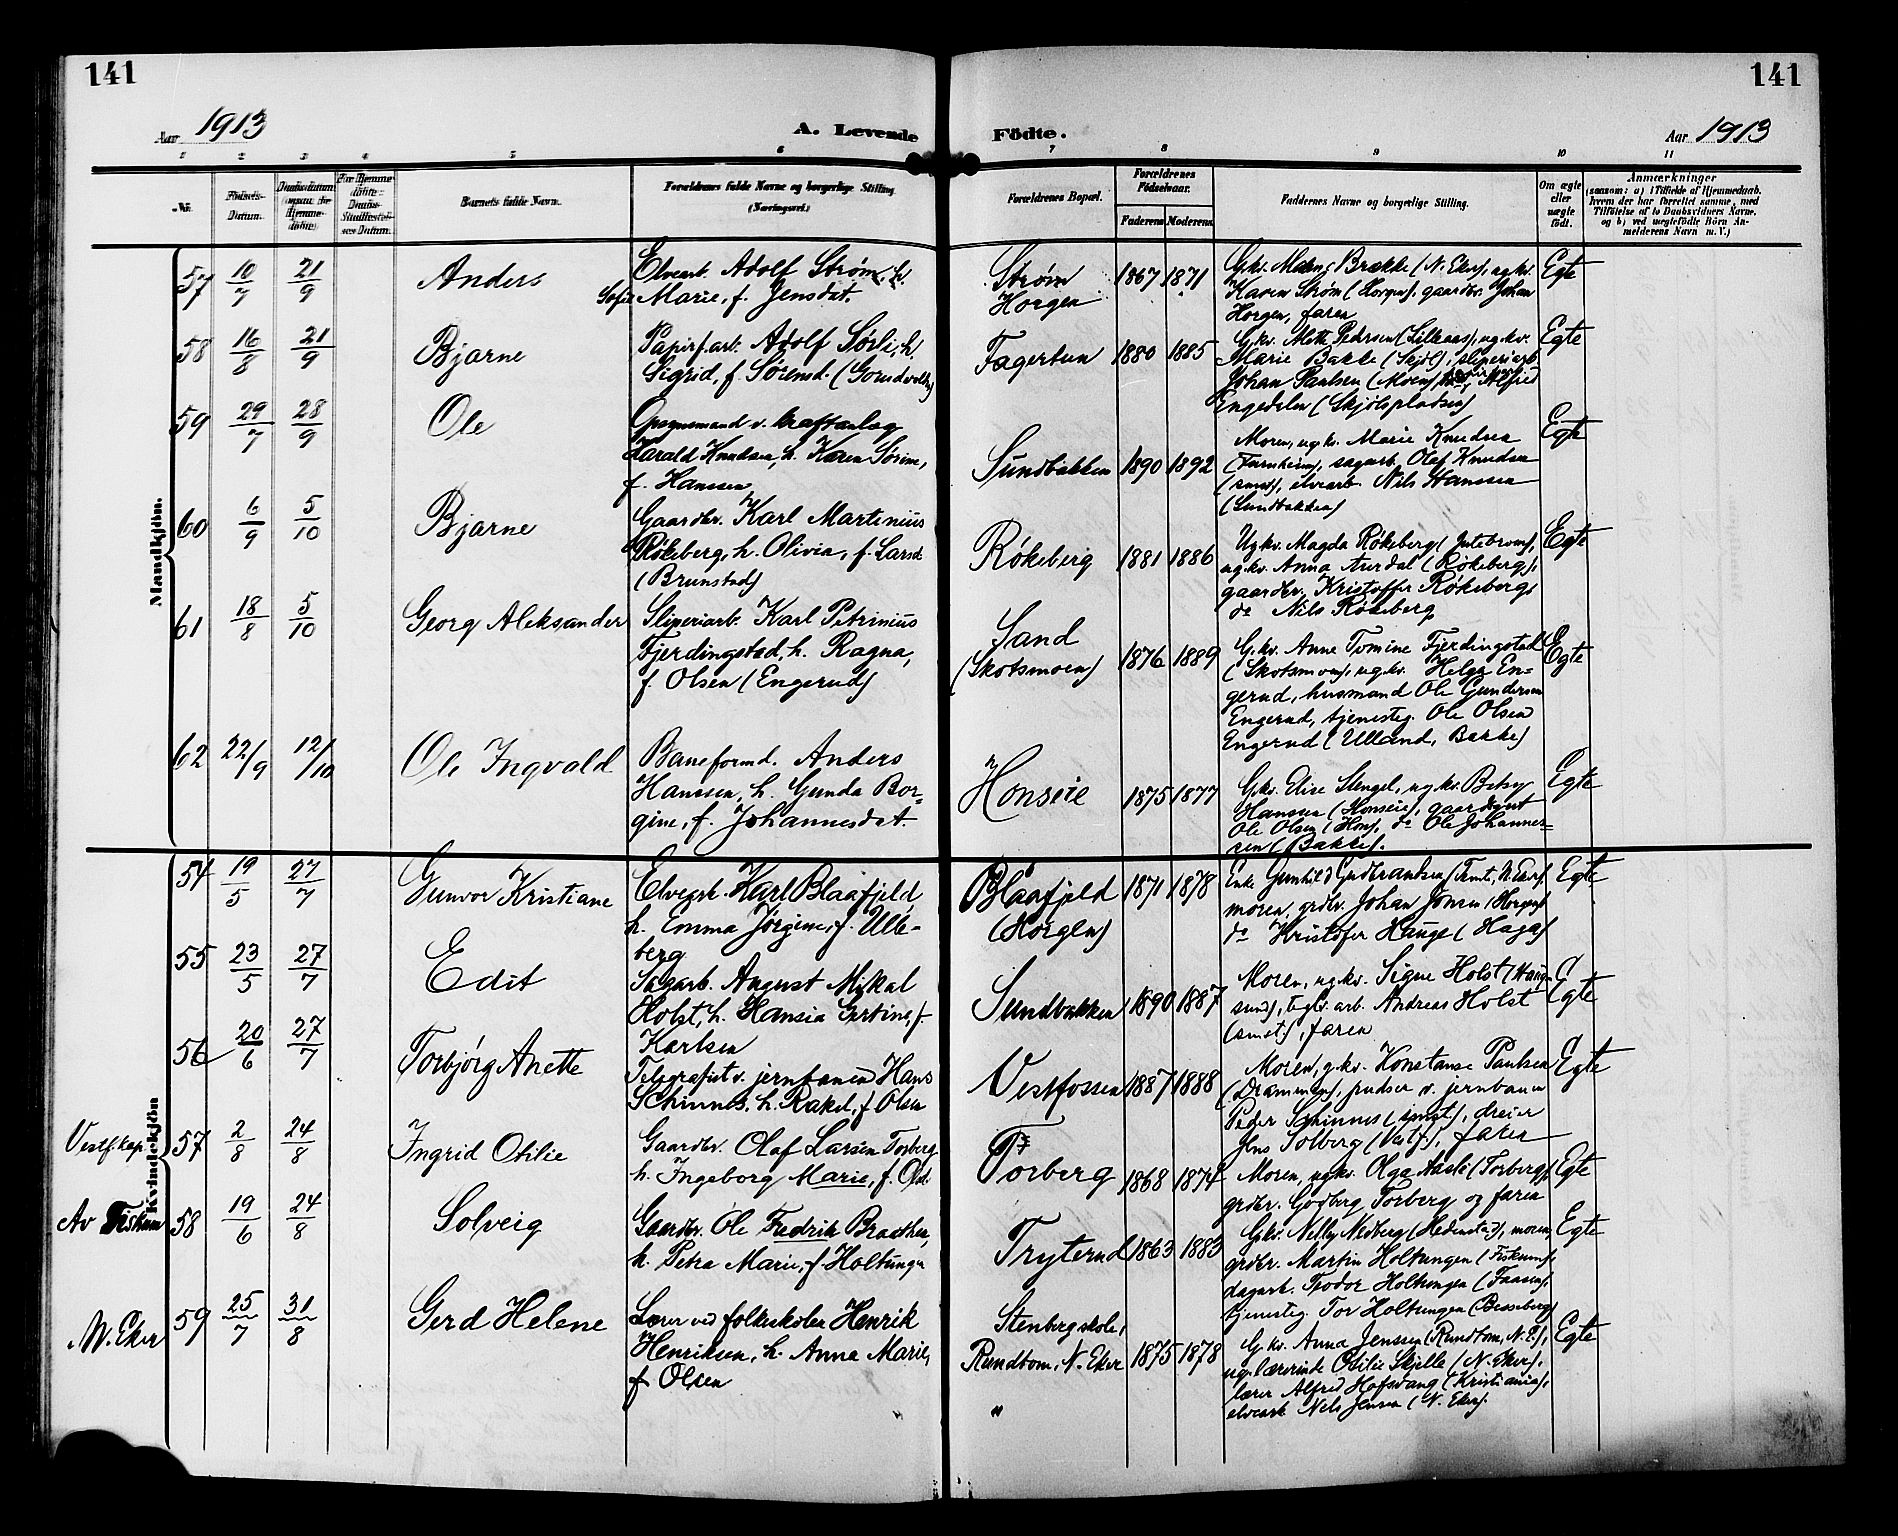 141
141
Aar 1913
A. Levende
Födte.
Aar 1913
1 2 3 4 5 6 7 8 9 10 11
Nr.
Födsels-Datum.
Barnets fulde Navn.
Forældrenes fulde Navne og borgerlige Stilling
(Næringsvei.)
Forældrenes Bopæl.
Forældrenes Födselsaar.
Faderens
Moderens
Faddernes Navne og borgerlige Stilling.
Om ægte eller uægte födt.
Anmærkninger
(saasom: a) i Tilfælde af Hjemmedaab. hvem der har forrettet samme, med Tilföielse af to Daabsvidners Navne. og b) ved uægtefödte Börn Anmelderens Navn m. V.)
Mandkjön.
57 10/7 21/9 Anders
Elvearb. Adolf Strøm, h.
Sofie Marie, f. Jensdat.
Strøm
Horgen
1867 1871
G.kv. Brække (N. Eker), ug.kv.
Karen Strøm (Horgen), gaardbr. Johan
Horgen, faren
Egte
58 16/8 21/9 Bjarne
Papirf.arb. Adolf Sørli, h.
Sigrid, f. Sørensd.
Fagertun
1880 1885
G.kv. Mette Pedersen ug.kv.
Marie Bakke (Skjøl), sliperiarb.
Johan Paulsen (Moen), Alfred
Engedalen (Skjølspladsen)
Egte
59 29/7 28/9 Ole
Opsynsmand v. kraftanlæg
Harald Knudsen, h. Karen Sørine,
f. Hanssen
Sundbakken
1890 1892
Moren, ug.kv. Marie Knudsen
sagarb. Olaf Knudsen
elvearb. Nils Hanssen
(Sundbakken)
Egte
60 6/9 5/10 Bjarne
Gaardbr. Karl Martinius
Røkeberg, h. Olivia, f. Larsd.
(Brunstad)
Røkeberg
1881 1886
Ug.kv. Magda Røkeberg
ug.kv. Anna Aurdal (Røkeberg),
gaardbr. Kristoffer Røkeberg,
do Nils Røkeberg
Egte
61 18/8 5/10 Georg Aleksander
Sliperiarb. Karl Petrinius
Fjerdingstad, h. Ragna,
f. Olsen (Engerud)
Sand
(Skotsmoen)
1876 1889
G.kv. Anne Tomine Fjerdingstad
(Skotsmoen), ug.kv. Helga En-
gerud, husmand Ole Gundersen
Engerud, tjenestg. Ole Olsen
Engerud (Ulland, Bakke)
Egte
62 22/9 12/10 Ole Ingvald
Baneformd. Anders
Hanssen, h. Gunda Bor-
gine, f. Johannesdat.
Honseie
1875 1877
G.kv. Elise Stengel, ug.kv. Betsy
Hansen (Honseie), gaardsgut
Ole Olsen (Hon), do Ole Johannes-
sen (Bakke).
Egte
Kvindekjön
54 19/5 27/7 Gunvor Kristiane
Elvegrb. Karl Blaafjeld,
h. Emma Jørgine, f. Ulle-
berg
Blaafjeld
(Horgen)
1871 1878
Enke Gunhild Gudbrandsen
moren, grdbr. Johan Jonsen (Horgen)
do Kristofer Hauge (Haga)
Egte
55 23/5 27/7 Edit
Sagarb. August Mikal
Holst, h. Hansia Gertine, f.
Karlsen
Sundbakken
1890 1887
Moren, ug.kv. Signe Holst (Haug-
sund), teglv.arb. Andreas Holst
(smst.), faren
Egte
56 20/6 27/7 Torbjørg Anette
Telegrafist v. jernbanen Hans
Schinnes, h. Rakel, f. Olsen
Vestfossen
1887 1888
Moren, g.kv. Konstanse Paulsen
(Drammen), pudser v. jernbanen
Peder Schinnes (smst.), dreier
Jens Solberg (Vestf.), faren
Egte
Vestf. kap.
57 2/8 24/8 Ingrid Otilie
Gaardbr. Olaf Larsen Torberg
h. Ingeborg Marie, f. Olsd.
Torberg
1868 1874
Moren, ug.kv. Olga Aasli (Torberg),
grdbr. Godberg Torberg og faren
Egte
Av Fiskum
58 19/6 24/8 Solveig
Gaardbr. Ole Fredrik Braathen,
h. Petra Marie, f. Holtungen
Tryterud
1863 1883
G.kv. Nelly Nedberg (Hedenstad), moren,
grdbr. Martin Holtungen (Fiskum),
dagarb. Teodor Holtungen (Faasen),
tjenestg. Tor Holtungen (Besseberg)
Egte
N. Eker
59 25/7 31/8 Gerd Helene
Lærer ved folkeskolen Henrik
Henriksen, h. Anna Marie,
f. Olsen
Stenberg skole,
Rundtom, N. Eker
"
1875 1878
G.kv. Anna Jenssen (Rundtom, N. E.),
ug. lærerinde Otilie Skjelle (N. Eker),
lærer Alfred Hofsvang (Kristiania),
elvearb. Nils Jensen (N. Eker).
Egte